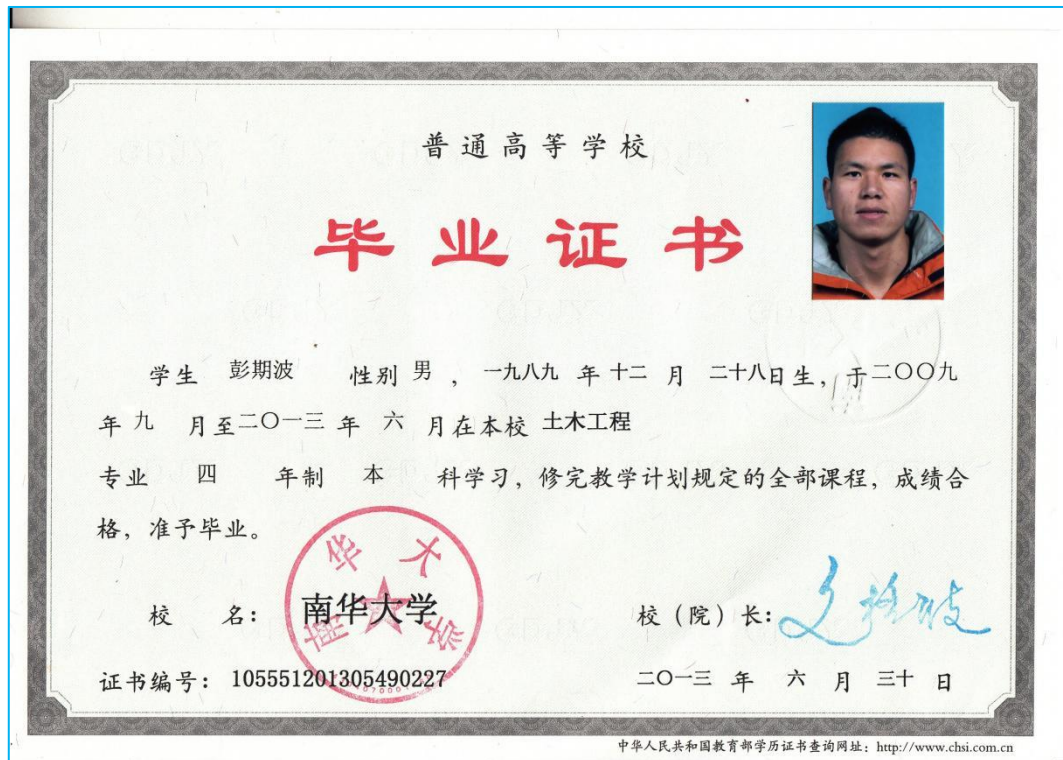 普通高等学校
毕业证书
学生 彭期波 性别 男 , 一九八九 年 十二 月 二十八日生，于二〇〇九
年 九 月至二〇一三 年 六 月在本校 土木工程
专业 四 年制 本 科学习，修完教学计划规定的全部课程，成绩合
格，准予毕业。
南华大学
校 名： 南华大学 校（院）长：
证书编号： 105551201305490227 二〇一三 年 六 月 三十 日
中华人民共和国教育部学历证书查询网址：http://www.chsi.com.cn